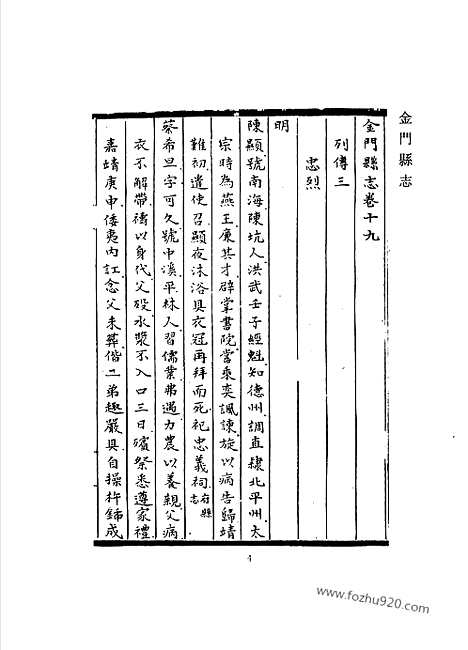 金門縣志
金門縣志卷十九
列傳三
忠烈
明
陳顯號南海陳坑人洪武壬子經魁知德州調直隸北平州太
宗時為燕王廉其才辟掌書院嘗乘奕諷諫旋以病告歸靖
難初遣使召顯夜沐浴具衣冠再拜而死祀忠義祠府縣志
蔡希旦字可久號中溪平林人習儒業弗遇力農以養親父病
衣不解帶禱以身代父歿水漿不入口三日殯祭悉遵家禮
嘉靖庚申倭夷內訌念父未葬偕二弟趣嚴具自操杵鍤成
4
www.fozhu920.com